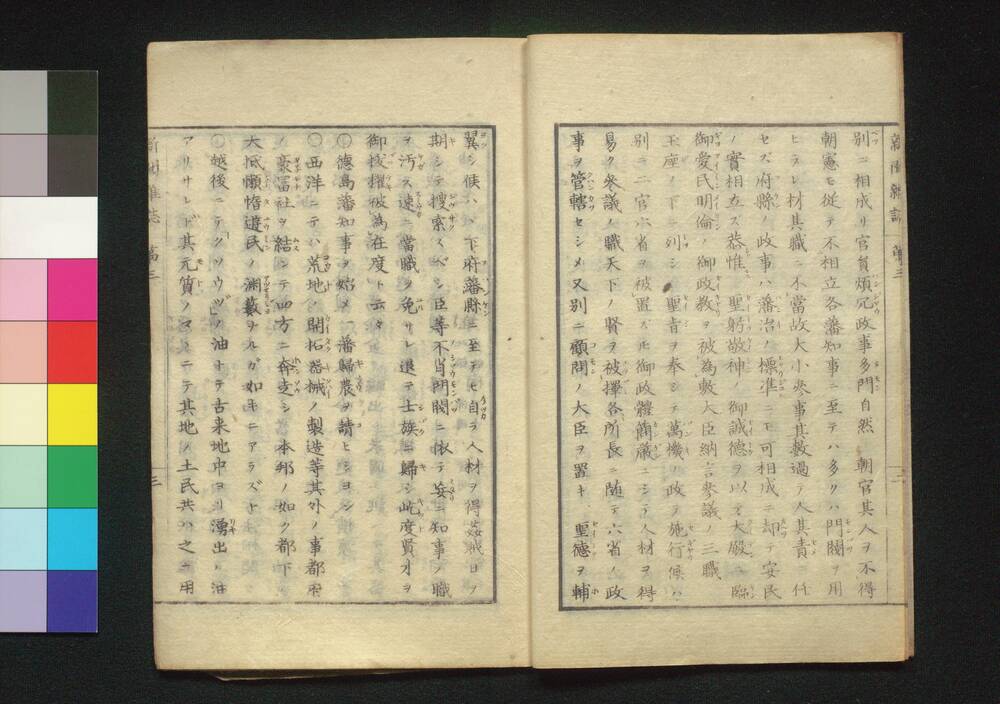 新聞雑誌 第三 二
別ニ相成リ官員煩冗政事多門自然 朝官其人ヲ不得
朝憲モ従テ不相立各藩知事ニ至テハ多クハ門閥ヲ用
ヒラレ材其職ニ不當故大小参事其數過テ人其責ニ任
セズ府縣ノ政事ハ藩治ノ標準ニモ可相成ニ却テ安民
ノ實相立ズ恭惟ニ 聖躬敬神ノ御誠德ヲ以テ大殿ニ臨
御愛民明倫ノ御政教ヲ被為敷大臣納言參議ノ三職
玉座ノ下ニ列シ 聖旨ヲ奉シテ萬機ノ政ヲ施行候ハ
別ニ二官六省ヲ被置ズ凡御政體簡嚴ニシテ人材ヲ得
易ク參議ノ職天下ノ賢ヲ被擇各所長ニ隨テ六省ノ政
事ヲ管轄セシメ又別ニ顧問ノ大臣ヲ置キ 聖德ヲ輔
翼シ候ハヾ下府藩縣ニ至テモ自ラ人材ヲ得姦賊日ヲ
期シテ搜索スベシ臣等不肖門閥ニ依テ妄ニ知事ノ職
ヲ汚ス速ニ當職ヲ免サレ退テ士族ニ歸シ此度賢才ヲ
御拔擢被為在度ト云々
○德島藩知事ヲ始メ一藩歸農ヲ請ヒシヨシ
○西洋ニテハ荒地ノ開拓器械ノ製造等其外ノ事都テ
ノ豪冨社ヲ結ンデ四方ニ奔走シ本邦ノ如ク都下ニ
大抵懶惰遊民ノ淵藪ヲルガ如キニアラズト
○越後ニテクソウヅノ油トテ古来地中ヨリ湧出ル油
アリサレド其元質ノママニテ其地ノ土民共ハ之ヲ用
新聞雑誌 第三 三